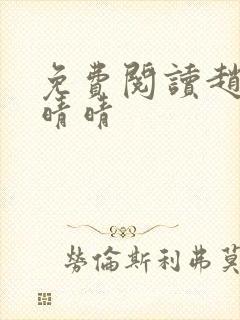 免費閱讀趙
晴晴
勞倫斯利弗莫